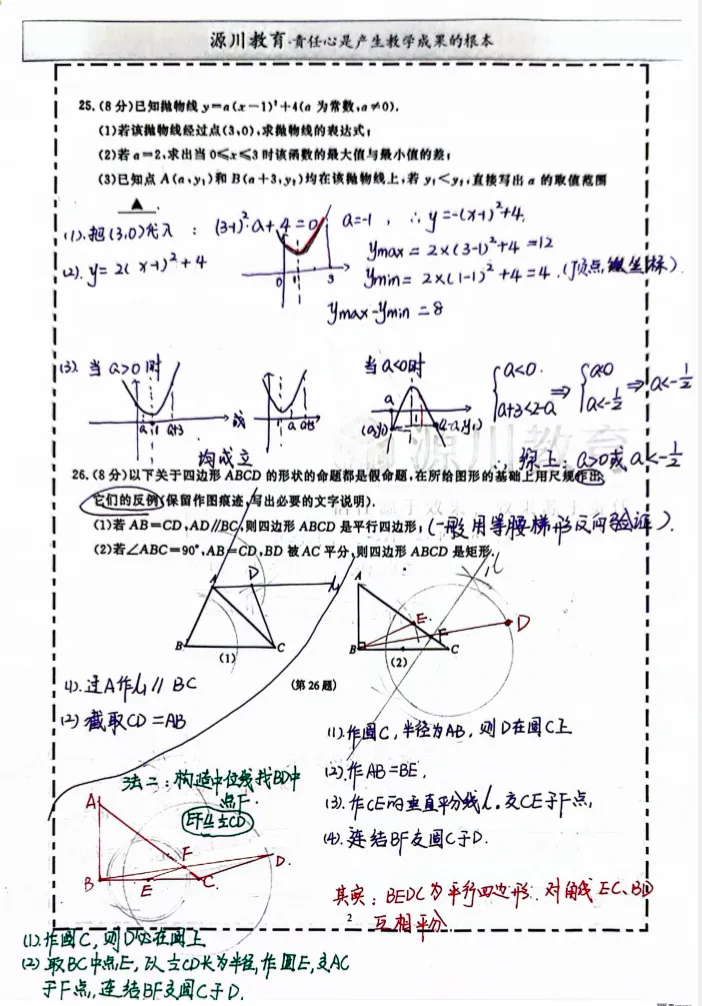 源川教育·责任心是产生教学成果的根本
25.(8分)已知抛物线 y=a(x-1)²+4(a 为常数,a≠0).
(1)若该抛物线经过点(3,0),求抛物线的表达式;
(2)若 a=2,求出当 0≤x≤3 时该函数的最大值与最小值的差;
(3)已知点 A(a,y₁)和 B(a+3,y₂)均在该抛物线上,若 y₁<y₂,直接写出 a 的取值范围
▲.
(1).把(3,0)代入: (3-1)²·a+4=0 a=-1, ∴y=-(x-1)²+4.
(2). y=2(x-1)²+4
0 1 3
ymax = 2×(3-1)²+4 =12
ymin = 2×(1-1)²+4=4.(顶点纵坐标).
ymax-ymin=8
(3). 当a>0时
a 1 a+3 或 1 a a+3
均成立
当a<0时
a (a,y₁) (2-a,y₁)
{a<0. a+3<2-a ⇒ {a<0 a<-1/2 ⇒ a<-1/2
∴综上: a>0或a<-1/2
源川教育
26.(8分)以下关于四边形 ABCD 的形状的命题都是假命题,在所给图形的基础上用尺规作出
它们的反例(保留作图痕迹,写出必要的文字说明).
(1)若 AB=CD,AD∥BC,则四边形 ABCD 是平行四边形;(一般用等腰梯形反向验证).
(2)若∠ABC=90°,AB=CD,BD 被 AC 平分,则四边形 ABCD 是矩形.
A D l₁
B C
(1)
A l
E F D
B C
(2)
(第 26 题)
(1).过A作l₁∥BC
(2)截取CD=AB
(1).作圆C,半径为AB,则D在圆C上
(2).作AB=BE.
(3).作CE的垂直平分线l.交CE于F点,
(4).连结BF交圆C于D.
其实:BEDC为平行四边形.对角线EC、BD
互相平分.
法二:构造中位线找BD中
点F.
EF∥=½CD
A
F D.
B E C.
2
(1).作圆C,则D必在圆上
(2)取BC中点E,以½CD长为半径,作圆E,交AC
于F点,连结BF交圆C于D.